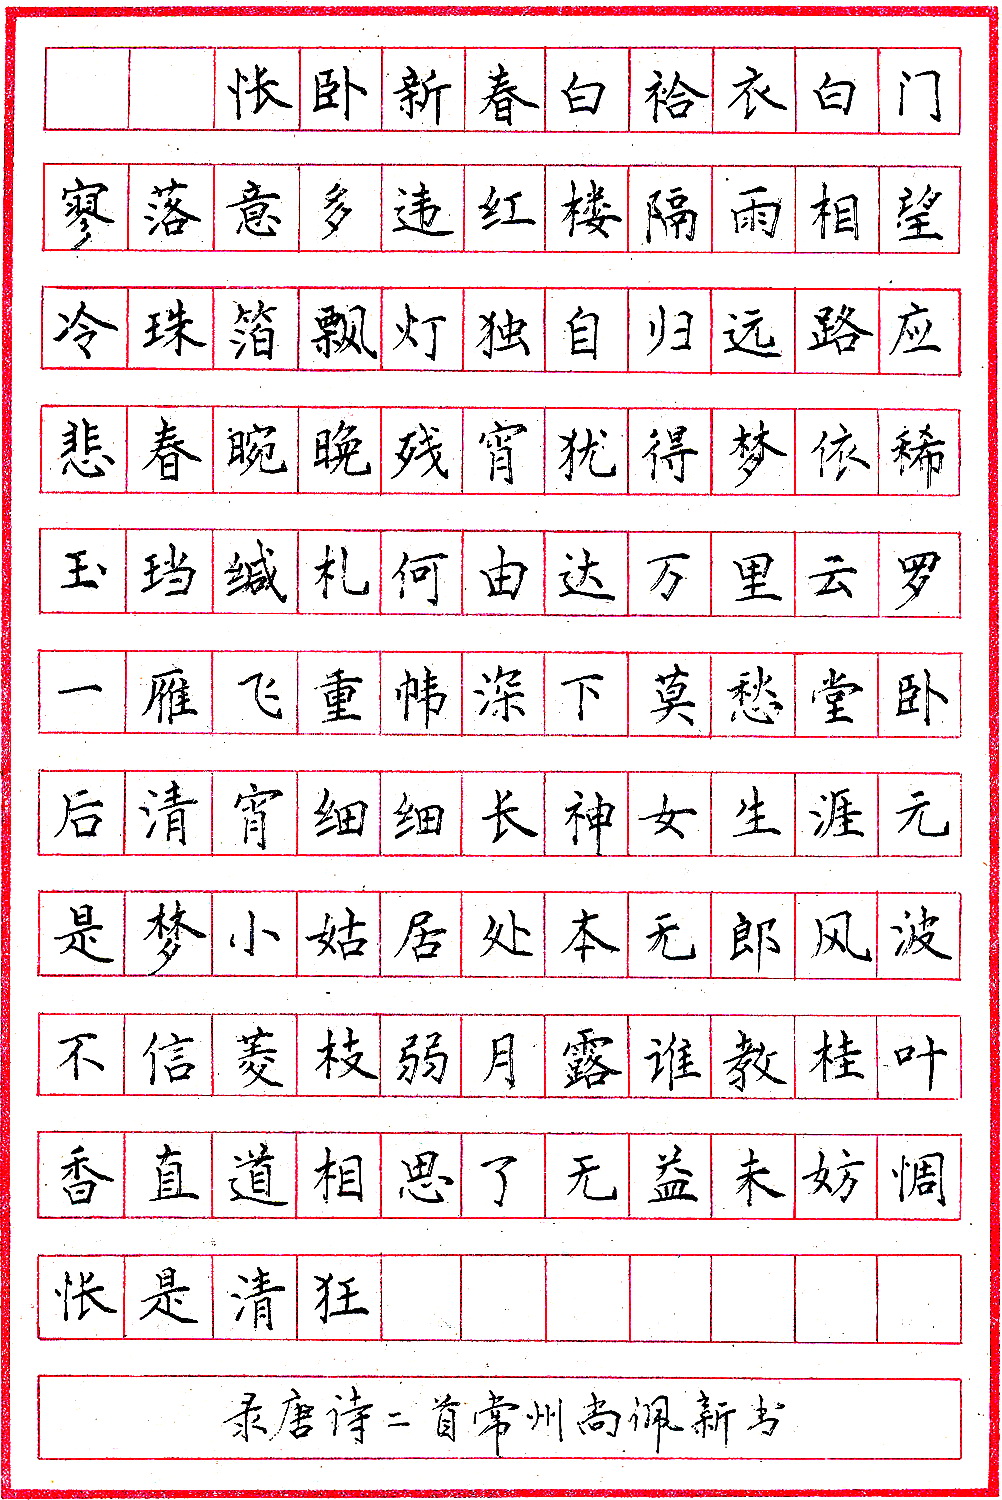 怅卧新春白袷衣白门
寥落意多违红楼隔雨相望
冷珠箔飘灯独自归远路应
悲春晼晚残宵犹得梦依稀
玉珰缄札何由达万里云罗
一雁飞重帏深下莫愁堂卧
后清宵细细长神女生涯元
是梦小姑居处本无郎风波
不信菱枝弱月露谁教桂叶
香直道相思了无益未妨惆
怅是清狂
录唐诗二首常州尚佩新书